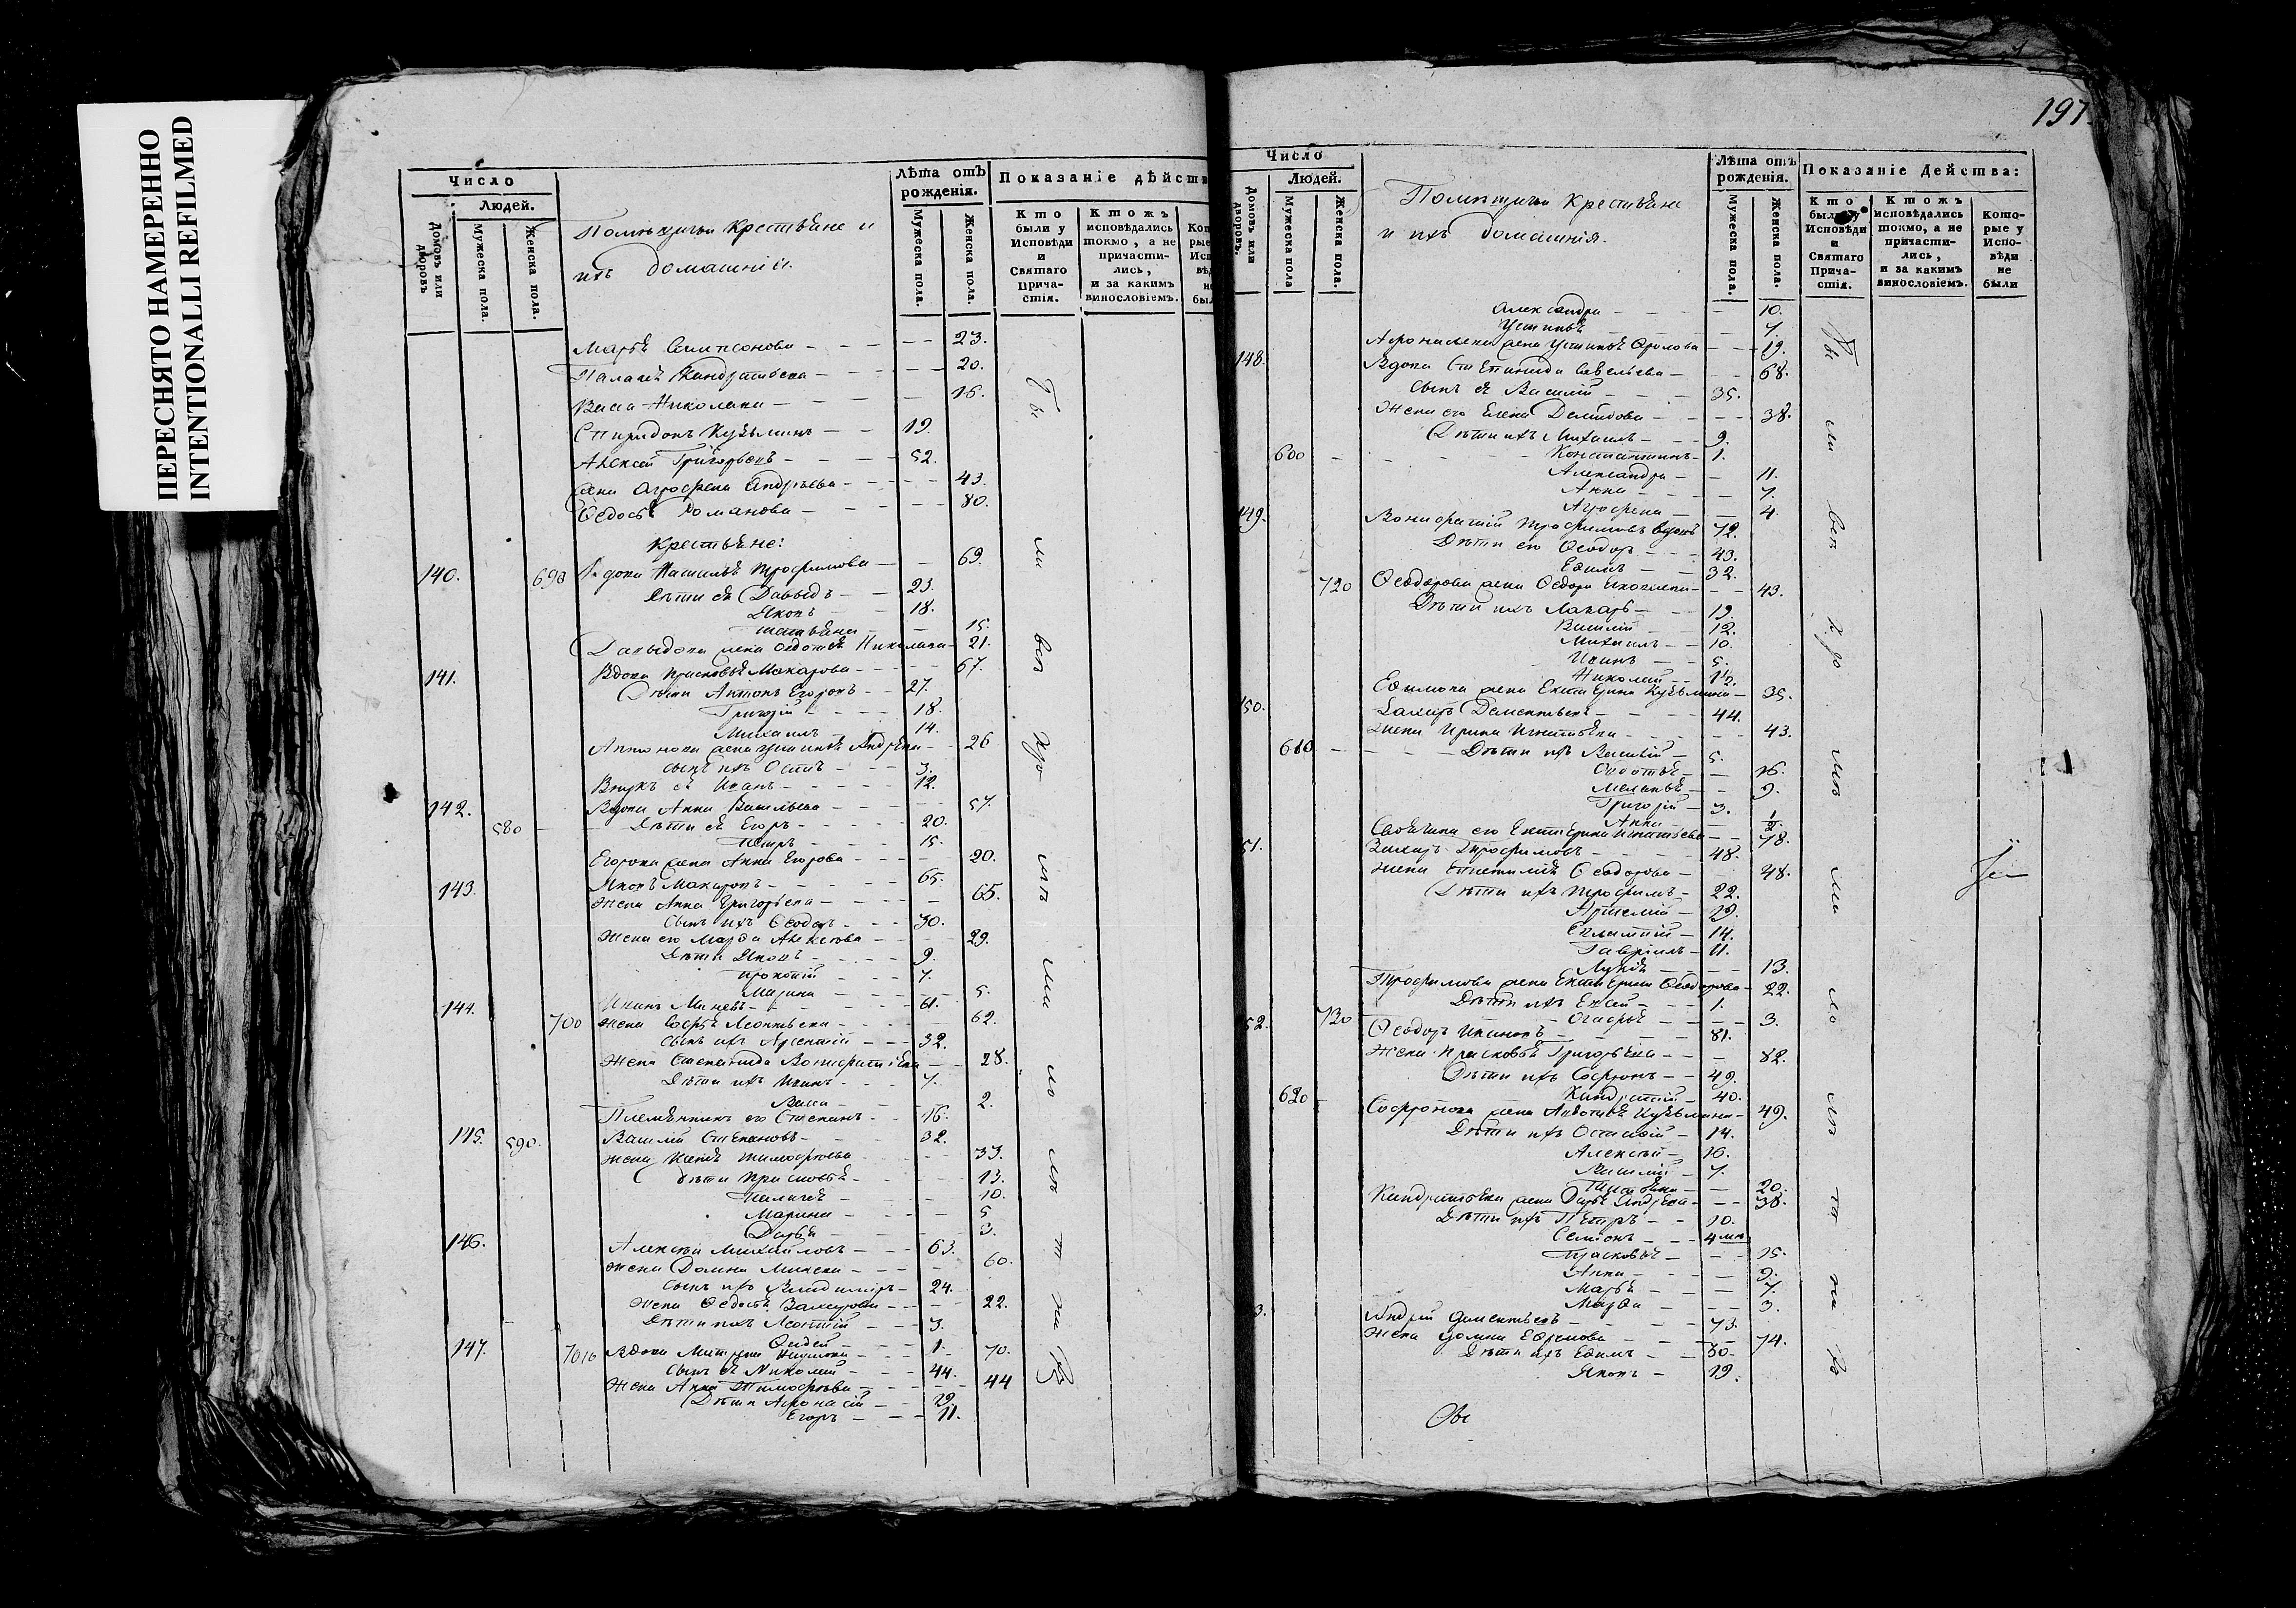 ПЕРЕСНЯТО НАМЕРЕННО
INTENTIONALLI REFILMED
Число
Людей.
Домовъ или дворовъ
Мужеска пола.
Женска пола.
Помѣщичьи крестьяне и
ихъ домашніи.
Лѣта отъ рожденія.
Мужеска пола.
Женска пола.
Показаніе дѣйств
Кто были у Исповѣди и Святаго Прича-стія.
Ктожъ исповѣдались токмо, а не причасти-лись, и за какимъ винословіемъ.
Марья Самсонова 23.
20.
Васса Николаева 16.
Спиридонъ Кузьминъ 19.
Алексей Григорьевъ 52.
жена Агрофена Андрѣева 43.
Федосья Романова 80.
Крестьяне:
140. 690 Вдова Наталья Трофимова 69.
Дѣти ея Давыдъ 23.
Яковъ 18.
Татьяна 15.
Давыдова жена Федотья Николаева 21.
141. Вдова Прасковья Макарова 67.
Дѣти Антонъ Егоровъ 27.
Григорій 18.
Михаилъ 14.
Антонова жена Устинья Андрѣева 26
сынъ ихъ Осипъ 3.
Внукъ ея Иванъ 12.
142. Вдова Анна Васильева 57.
580 Дѣти ея Егоръ 20.
Петръ 15.
Егорова жена Анна Егорова 20.
143. Яковъ Макаровъ 65.
Жена Анна Григорьева 65.
Сынъ ихъ Феодоръ 30.
Жена его Марфа Алексѣева 29.
Дѣти Яковъ 9.
Прокопій 7.
Марина 5.
144. Иванъ Минеевъ 61.
700 жена Софья Леонтьева 62.
сынъ ихъ Арсентій 32.
Жена Степанида Вонифатьева 28.
Дѣти ихъ Иванъ 7.
Васса 2.
Племянникъ его Степанъ 16.
145. 590. Василій Степановъ 32.
жена Тимофѣева 33.
дѣти Прасковья 13.
Палагея 10.
Марина 5
Дарья 3.
146. Алексѣй Михайловъ 63.
жена Домна Минеева 60.
сынъ ихъ Владимиръ 24.
Жена Федосья Захарова 22.
Дѣти ихъ Леонтій 3.
Фадей 1.
147. 7010 Вдова 70.
сынъ ея Николай 44.
Жена Анна Тимофѣева 44
Дѣти Афонасій 19.
Егоръ 11.
197.
Число
Людей.
Домовъ или дворовъ.
Мужеска пола
Женска пола.
Помѣщичьи крестьяне
и ихъ домашнія.
Лѣта отъ рожденія.
Мужеска пола.
Женска пола.
Показаніе Дейсшва:
Кто были у Исповѣди и Святаго Прича-стія.
Ктожъ исповѣдались токмо, а не причасти-лись, и за какимъ винословіемъ.
Кото-рые у Испо-вѣди не были
Александра 10.
Устинья 7.
Афонасьева жена Устинья Фролова 19.
148. Вдова Степанида Савельева 68.
сынъ ея Василій 35.
Жена его Елена Демидова 38.
Дѣти ихъ Михаилъ 9.
600 Константинъ 1.
Александра 11.
Анна 7.
Агрофена 4.
149. Вонифатій Трофимовъ вдовъ 72.
Дѣти его Феодоръ 43.
Ефимъ 32.
720 Феодорова жена Федора Яковлева 43.
Дѣти ихъ Захаръ 19.
Василій 12.
Михаилъ 10.
Иванъ 5.
Николай 1½.
Ефимова жена Екатерина Кузьмина 35.
150. Захаръ Дементьевъ 44.
Жена Ирина Игнатьева 43.
610 Дѣти ихъ Василій 5.
Федотья 16.
Меланья 9.
Григорій 3.
Анна ½.
Своячина его Екатерина Игнатьева 18.
51. Захаръ Трофимовъ 48.
Жена Феодорова 48.
Дѣти ихъ Трофимъ 22.
Артемій 19.
Евлампій 14.
Гавріилъ 11.
Лукія 13.
Трофимова жена Екатерина Феодорова 22.
Дѣти ихъ Евсей 1.
730 3.
52. Феодоръ Ивановъ 81.
Жена Прасковья Григорьева 82.
Дѣти ихъ Софронъ 49.
620 Кондратій 40.
Софронова жена Авдотья Кузьмина 49.
Дѣти ихъ 14.
Алексѣй 16.
Василій 7.
Татьяна 20.
Кондратьева жена Дарья Андреева 38.
Дѣти ихъ Петръ 10.
Семіонъ 4 мѣ
Прасковья 15.
Анна 9.
Марья 7.
Марфа 3.
3. Андрей Дементьевъ 73.
Жена Домна Ефремова 74.
Дѣти ихъ Ефимъ 30.
Яковъ 19.